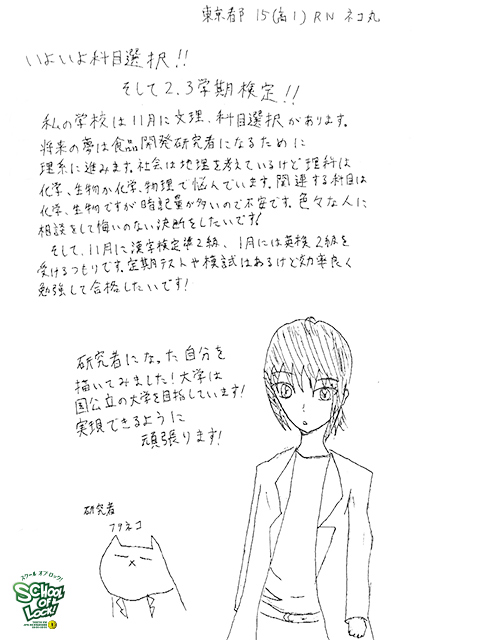 東京都 15(高1) RN ネコ丸
いよいよ科目選択!!
そして2.3学期検定!!
私の学校は11月に文理、科目選択があります。
将来の夢は食品開発研究者になるために
理系に進みます。社会は地理を考えているけど理科は
化学、生物か化学、物理で悩んでいます。関連する科目は
化学、生物ですが暗記量が多いので不安です。色々な人に
相談をして悔いのない決断をしたいです!
そして、11月に漢字検定準2級、1月には英検2級を
受けるつもりです。定期テストや模試はあるけど効率良く
勉強して合格したいです!
研究者になった自分を
描いてみました!大学は
国公立の大学を目指しています!
実現できるように
頑張ります!
研究者
フサネコ
スクール オブ ロック!
SCHOOL
OF
LOCK!